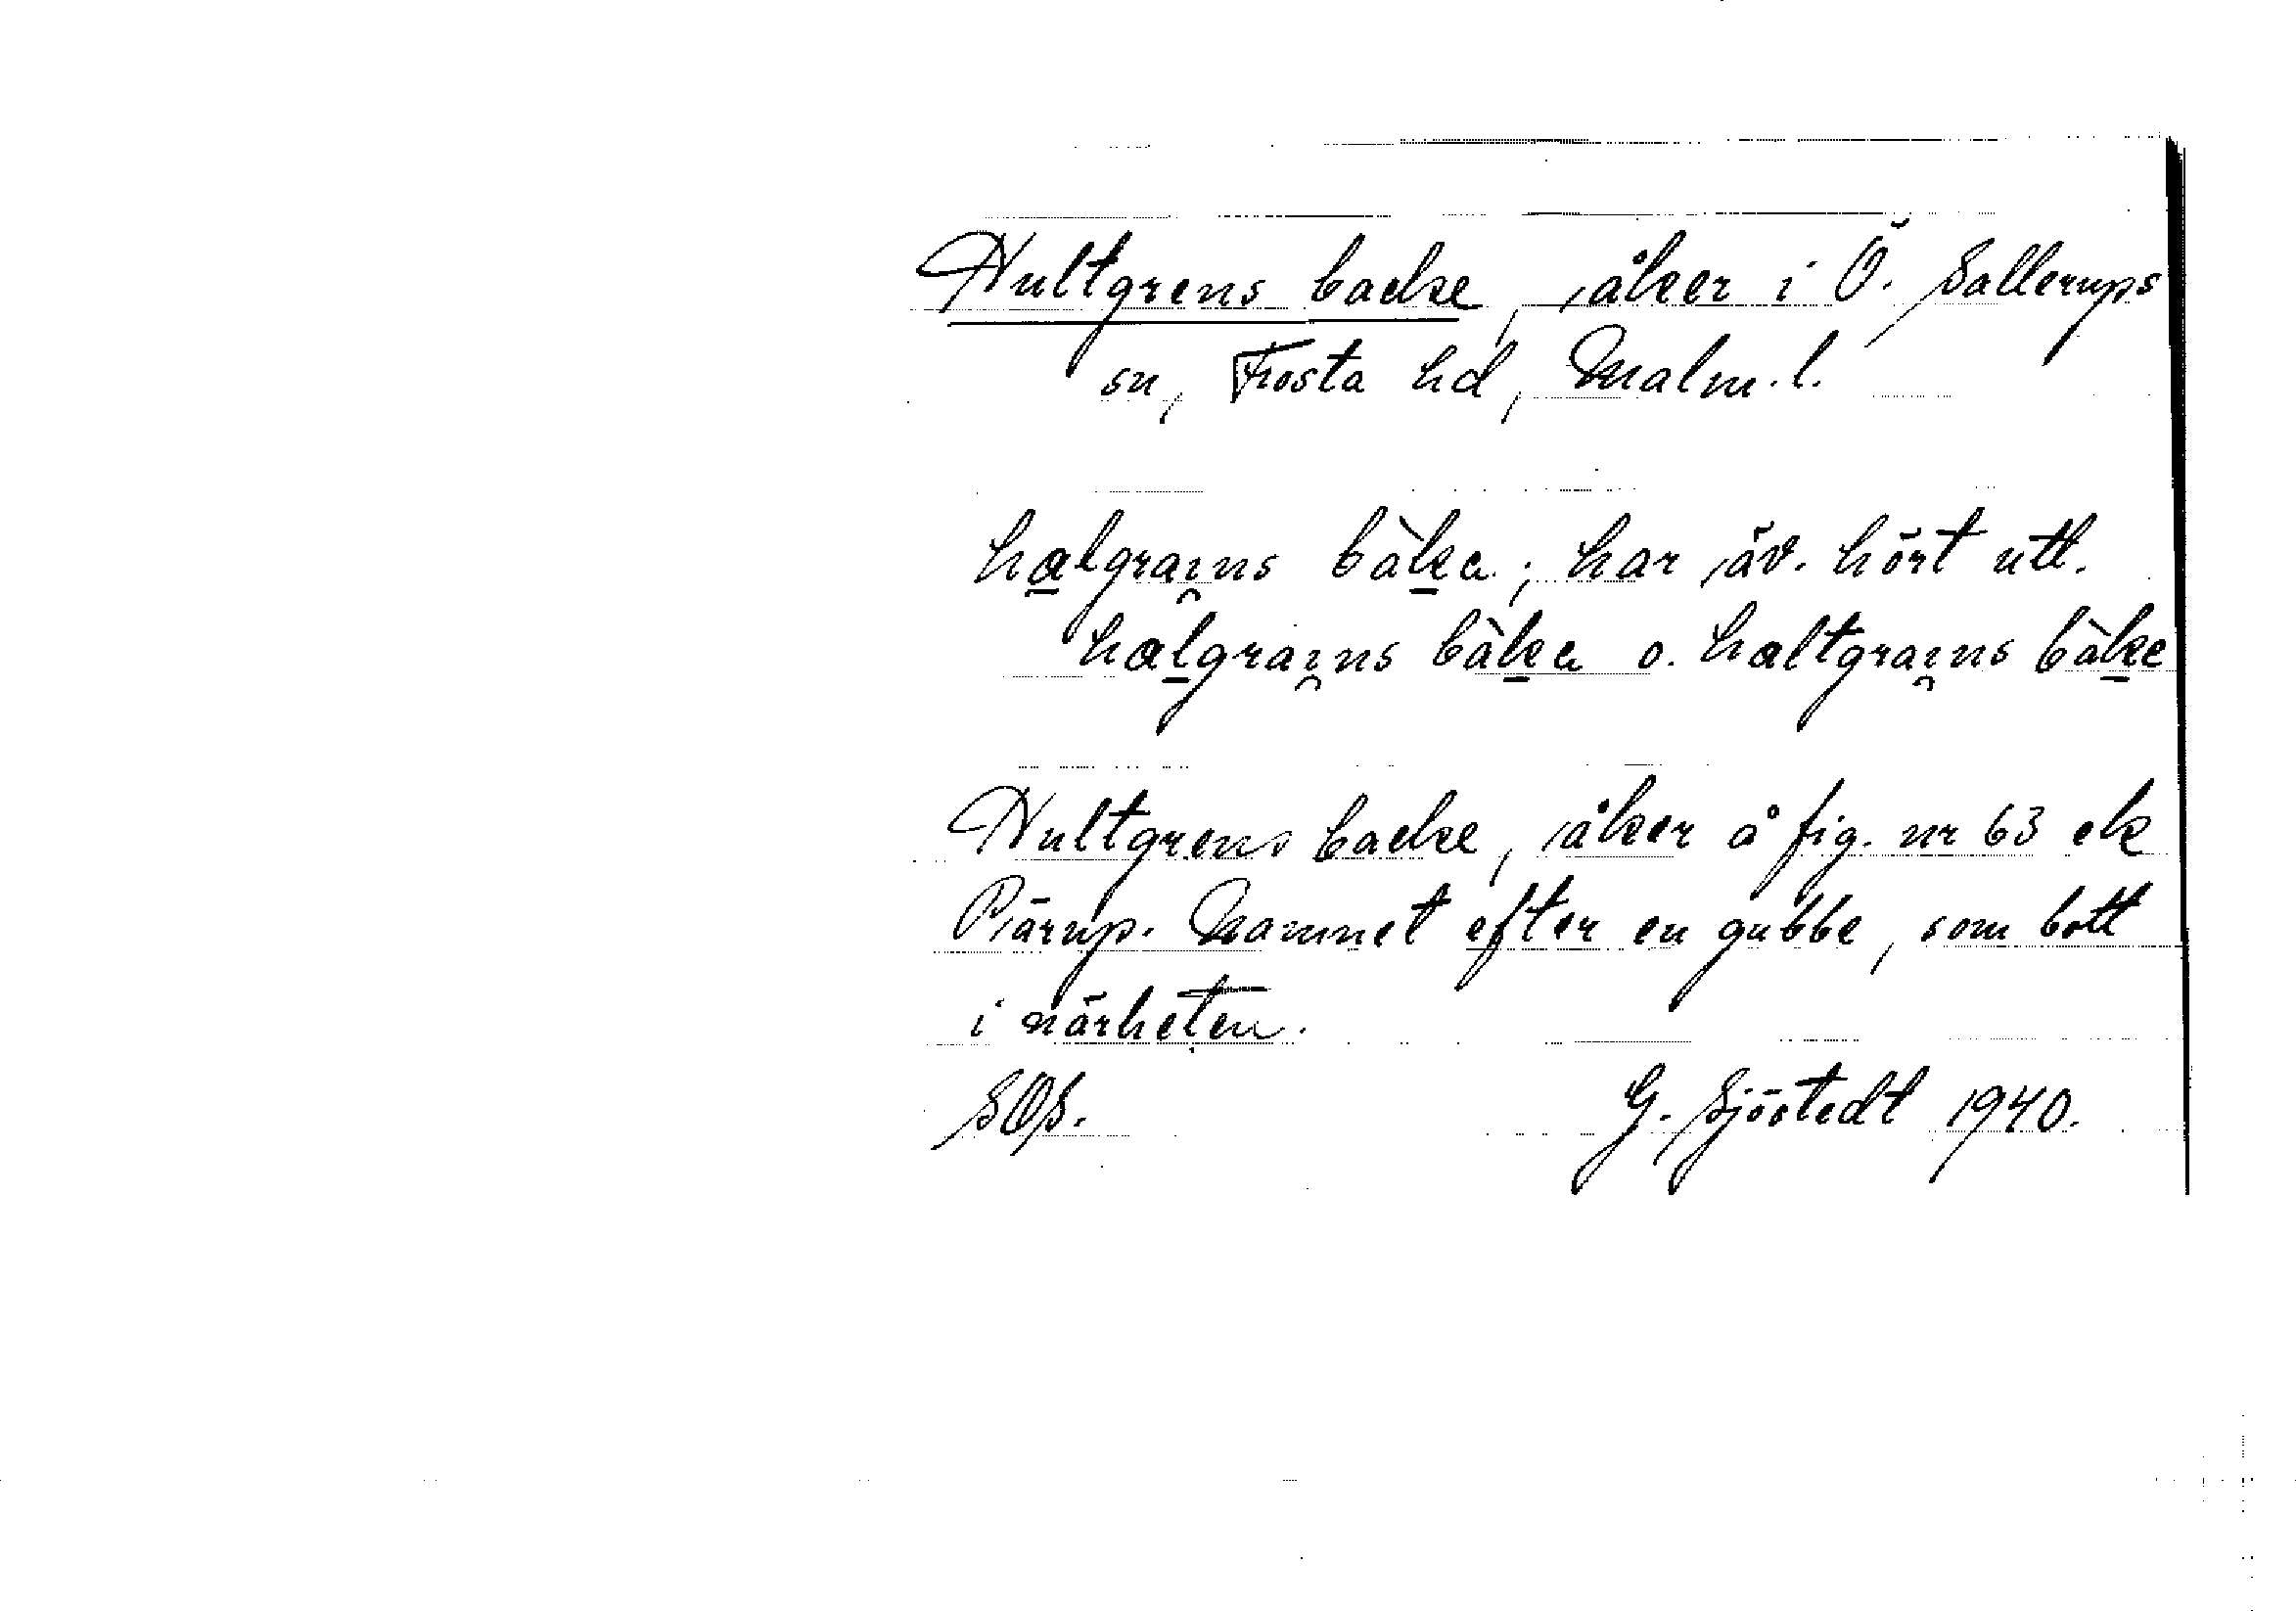 Hultgrens backe, åker i Ö. Sallerups
sn, Frosta hd, Malm. l.
halgraıns bàka; har äv. hört utt.
halgraıns bàka o. haltgraıns bàke
Hultgrens backe, åker å fig. nr 63 ek
Pärup. Namnet efter en gubbe, som bott
i närheten.
SOS. G. Sjöstedt 1940.